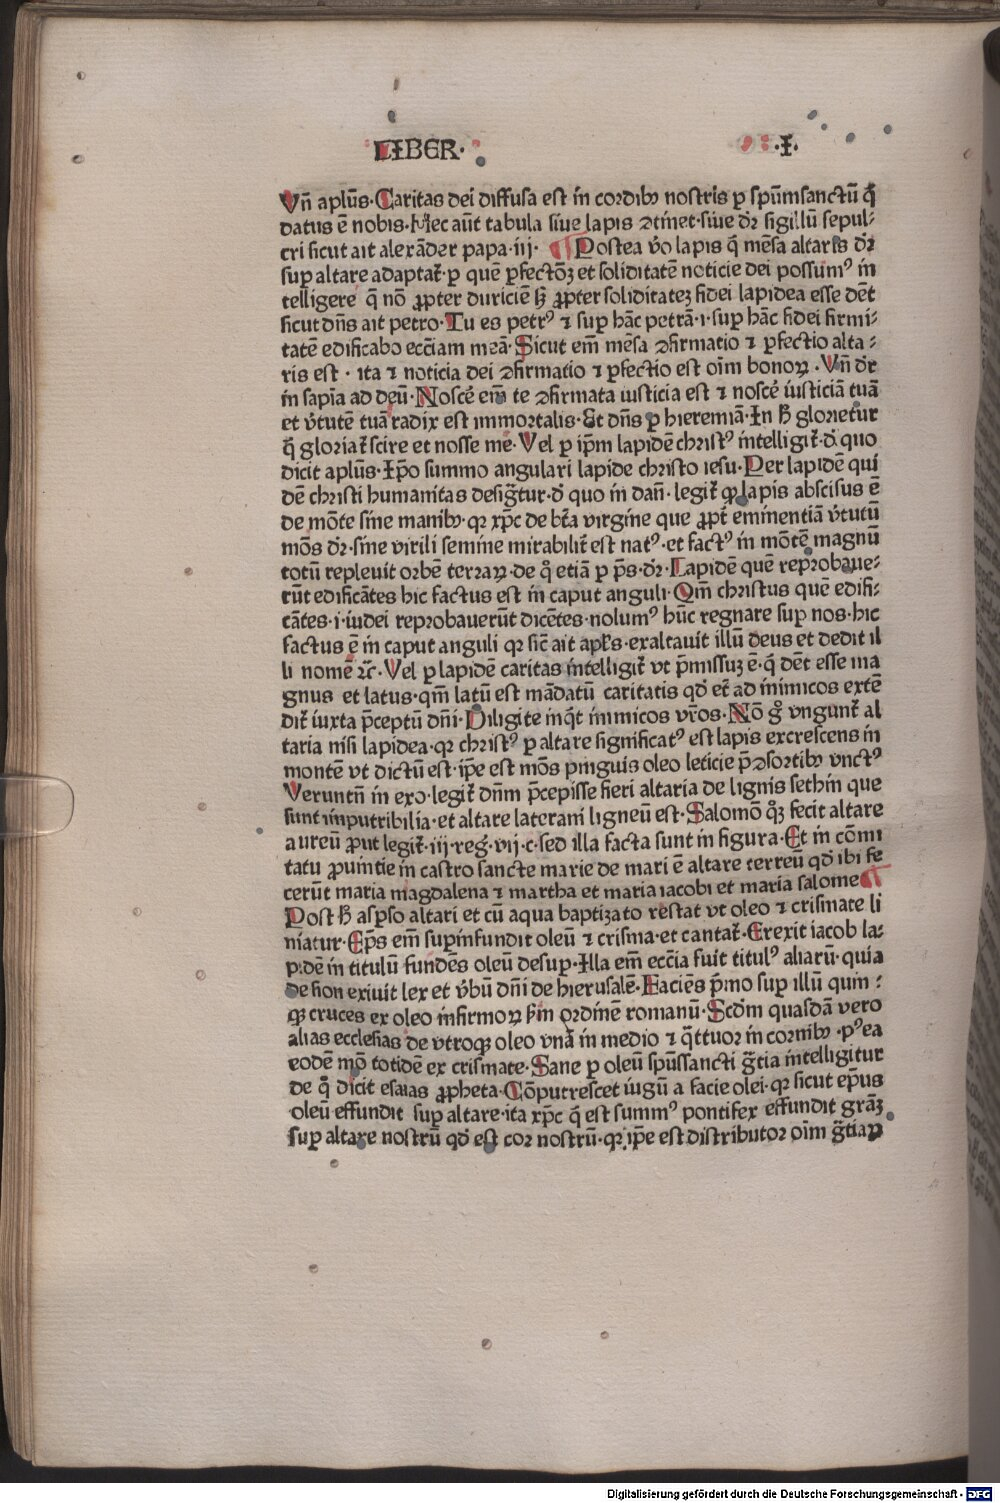 LIBER· ·I·
Vñ aplūs·Caritas dei diffusa est in cordibꝫ nostris ꝑ spūmsanctū q̄
datus ē nobis·Hec aūt tabula siue lapis ꝯtinet·siue dr̄ sigillū sepul-
cri sicut ait alexāder papa·iij· ¶ Postea v̄o lapis q̄ mēsa altaris dr̄
suꝑ altare adaptat̄·ꝑ quē ꝑfectōꝫ et soliditatē noticie dei possumꝰ in
telligere q̄ nō ꝓpter duriciē sꝫ ꝓpter soliditateꝫ fidei lapidea esse dēt
sicut dn̄s ait petro·Tu es petrꝰ ⁊ suꝑ hāc petrā·i·suꝑ hāc fidei firmi-
tatē edificabo ecciam meā·Sicut em̄ mēsa ꝯfirmatio ⁊ ꝑfectio alta-
ris est · ita ⁊ noticia dei ꝯfirmatio ⁊ ꝑfectio est oīm bonoꝝ ·Vñ dr̄
in sapīa ad deū·Noscē em̄ te ꝯfirmata iusticia est ⁊ noscē iusticiā tuā
et v̄tutē tuā radix est immortalis·Et dn̄s ꝑ hieremiā·In h̄ glorietur
q̄ gloriat̄ scire et nosse me·Vel ꝑ ip̄m lapidē christꝰ intelligit̄·d̄ quo
dicit aplūs·Ip̄o summo angulari lapide christo iesu·Per lapidē qui
dē christi humanitas desigt̄ur·d̄ quo in dan̄·legit̄ ꝙ lapis abscisus ē
de mōte sine manibꝫ·qꝛ xp̄c de bt̄a virgine que ꝓpt̄ eminentiā v̄tutū
mōs dr̄·sine virili semine mirabilit̄ est natꝰ·et factꝰ in mōtē magnū
totū repleuit orbē terraꝝ·de q̊ etiā ꝑ p̄s·dr̄·Lapidē quē reprobaue-
rūt edificātes hic factus est in caput anguli·Qm̄ christus quē edifi-
cātes·i·iudei reprobauerūt dicētes·nolumꝰ hūc regnare suꝑ nos·hic
factus ē in caput anguli qꝛ sic̄ ait apl̄s·exaltauit illū deus et dedit il
li nomē ⁊c̄·Vel ꝑ lapidē caritas intelligit̄ vt p̄missuꝫ ē·q̄ dēt esse ma
gnus et latus·qm̄ latū est mādatū caritatis qd̄ et̄ ad inimicos extē
dit̄ iuxta p̄ceptū dn̄i·Diligite inq̄t inimicos vr̄os·Nō g̊ vngunt̄ al
taria nisi lapidea·qꝛ christꝰ ꝑ altare significatꝰ est lapis excrescens in
montē vt dictū est·ip̄e est mōs pinguis oleo leticie p̄ ꝯsortibꝫ vnctꝰ
Veruntn̄ in exo·legit̄ dn̄m p̄cepisse fieri altaria de lignis sethin que
sunt imputribilia·et altare laterani ligneū est·Salomō qꝫ fecit altare
aureū ꝓut legit̄·iij·reg̅·vij·c·sed illa facta sunt in figura·Et in cōmi
tatu ꝓuintie in castro sancte marie de mari ē altare terreū qd̄ ibi fe
cerūt maria magdalena ⁊ martha et maria iacobi et maria salome ¶
Post h̄ asꝑso altari et cū aqua baptizato restat vt oleo ⁊ crismate li
niatur·Ep̄s em̄ suꝑinfundit oleū ⁊ crisma·et cantat̄·Erexit iacob la-
pidē in titulū fundēs oleū desuꝑ·Illa em̄ eccīa fuit titulꝰ aliarū·quia
de sion exiuit lex et v̄bū dn̄i de hierusalē·Faciēs p̄mo suꝑ illū quin-
qꝫ cruces ex oleo infirmoꝝ s̄m ordinē romanū·Scdm̄ quasdā vero
alias ecclesias de vtroqꝫ oleo vnā in medio ⁊ q̄ttuor in cornibꝫ ·pꝰea
eodē mō totidē ex crismate·Sane ꝑ oleū spūssancti gr̄tia intelligitur
de q̊ dicit esaias ꝓpheta·Cōputrescet iugū a facie olei·qꝛ sicut ep̄us
oleū effundit suꝑ altare·ita xp̄c q̄ est summꝰ pontifex effundit grāꝫ
suꝑ altare nostrū qd̄ est cor nostrū·qꝛ ip̄e est distributor oīm gr̄tiaꝝ
Digitalisierung gefördert durch die Deutsche Forschungsgemeinschaft - DFG